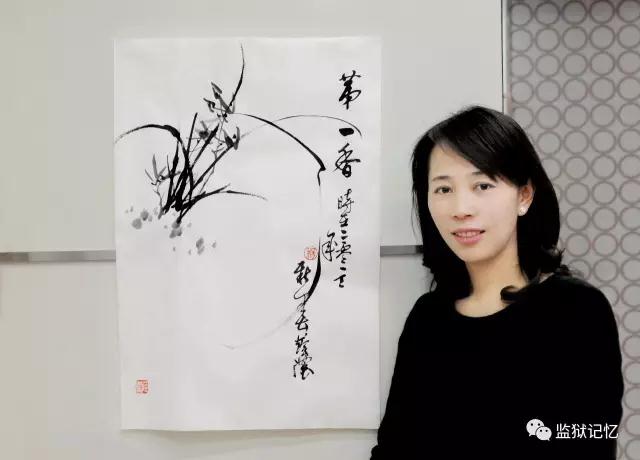 第一香
時在二零一
年
新春
监狱记忆